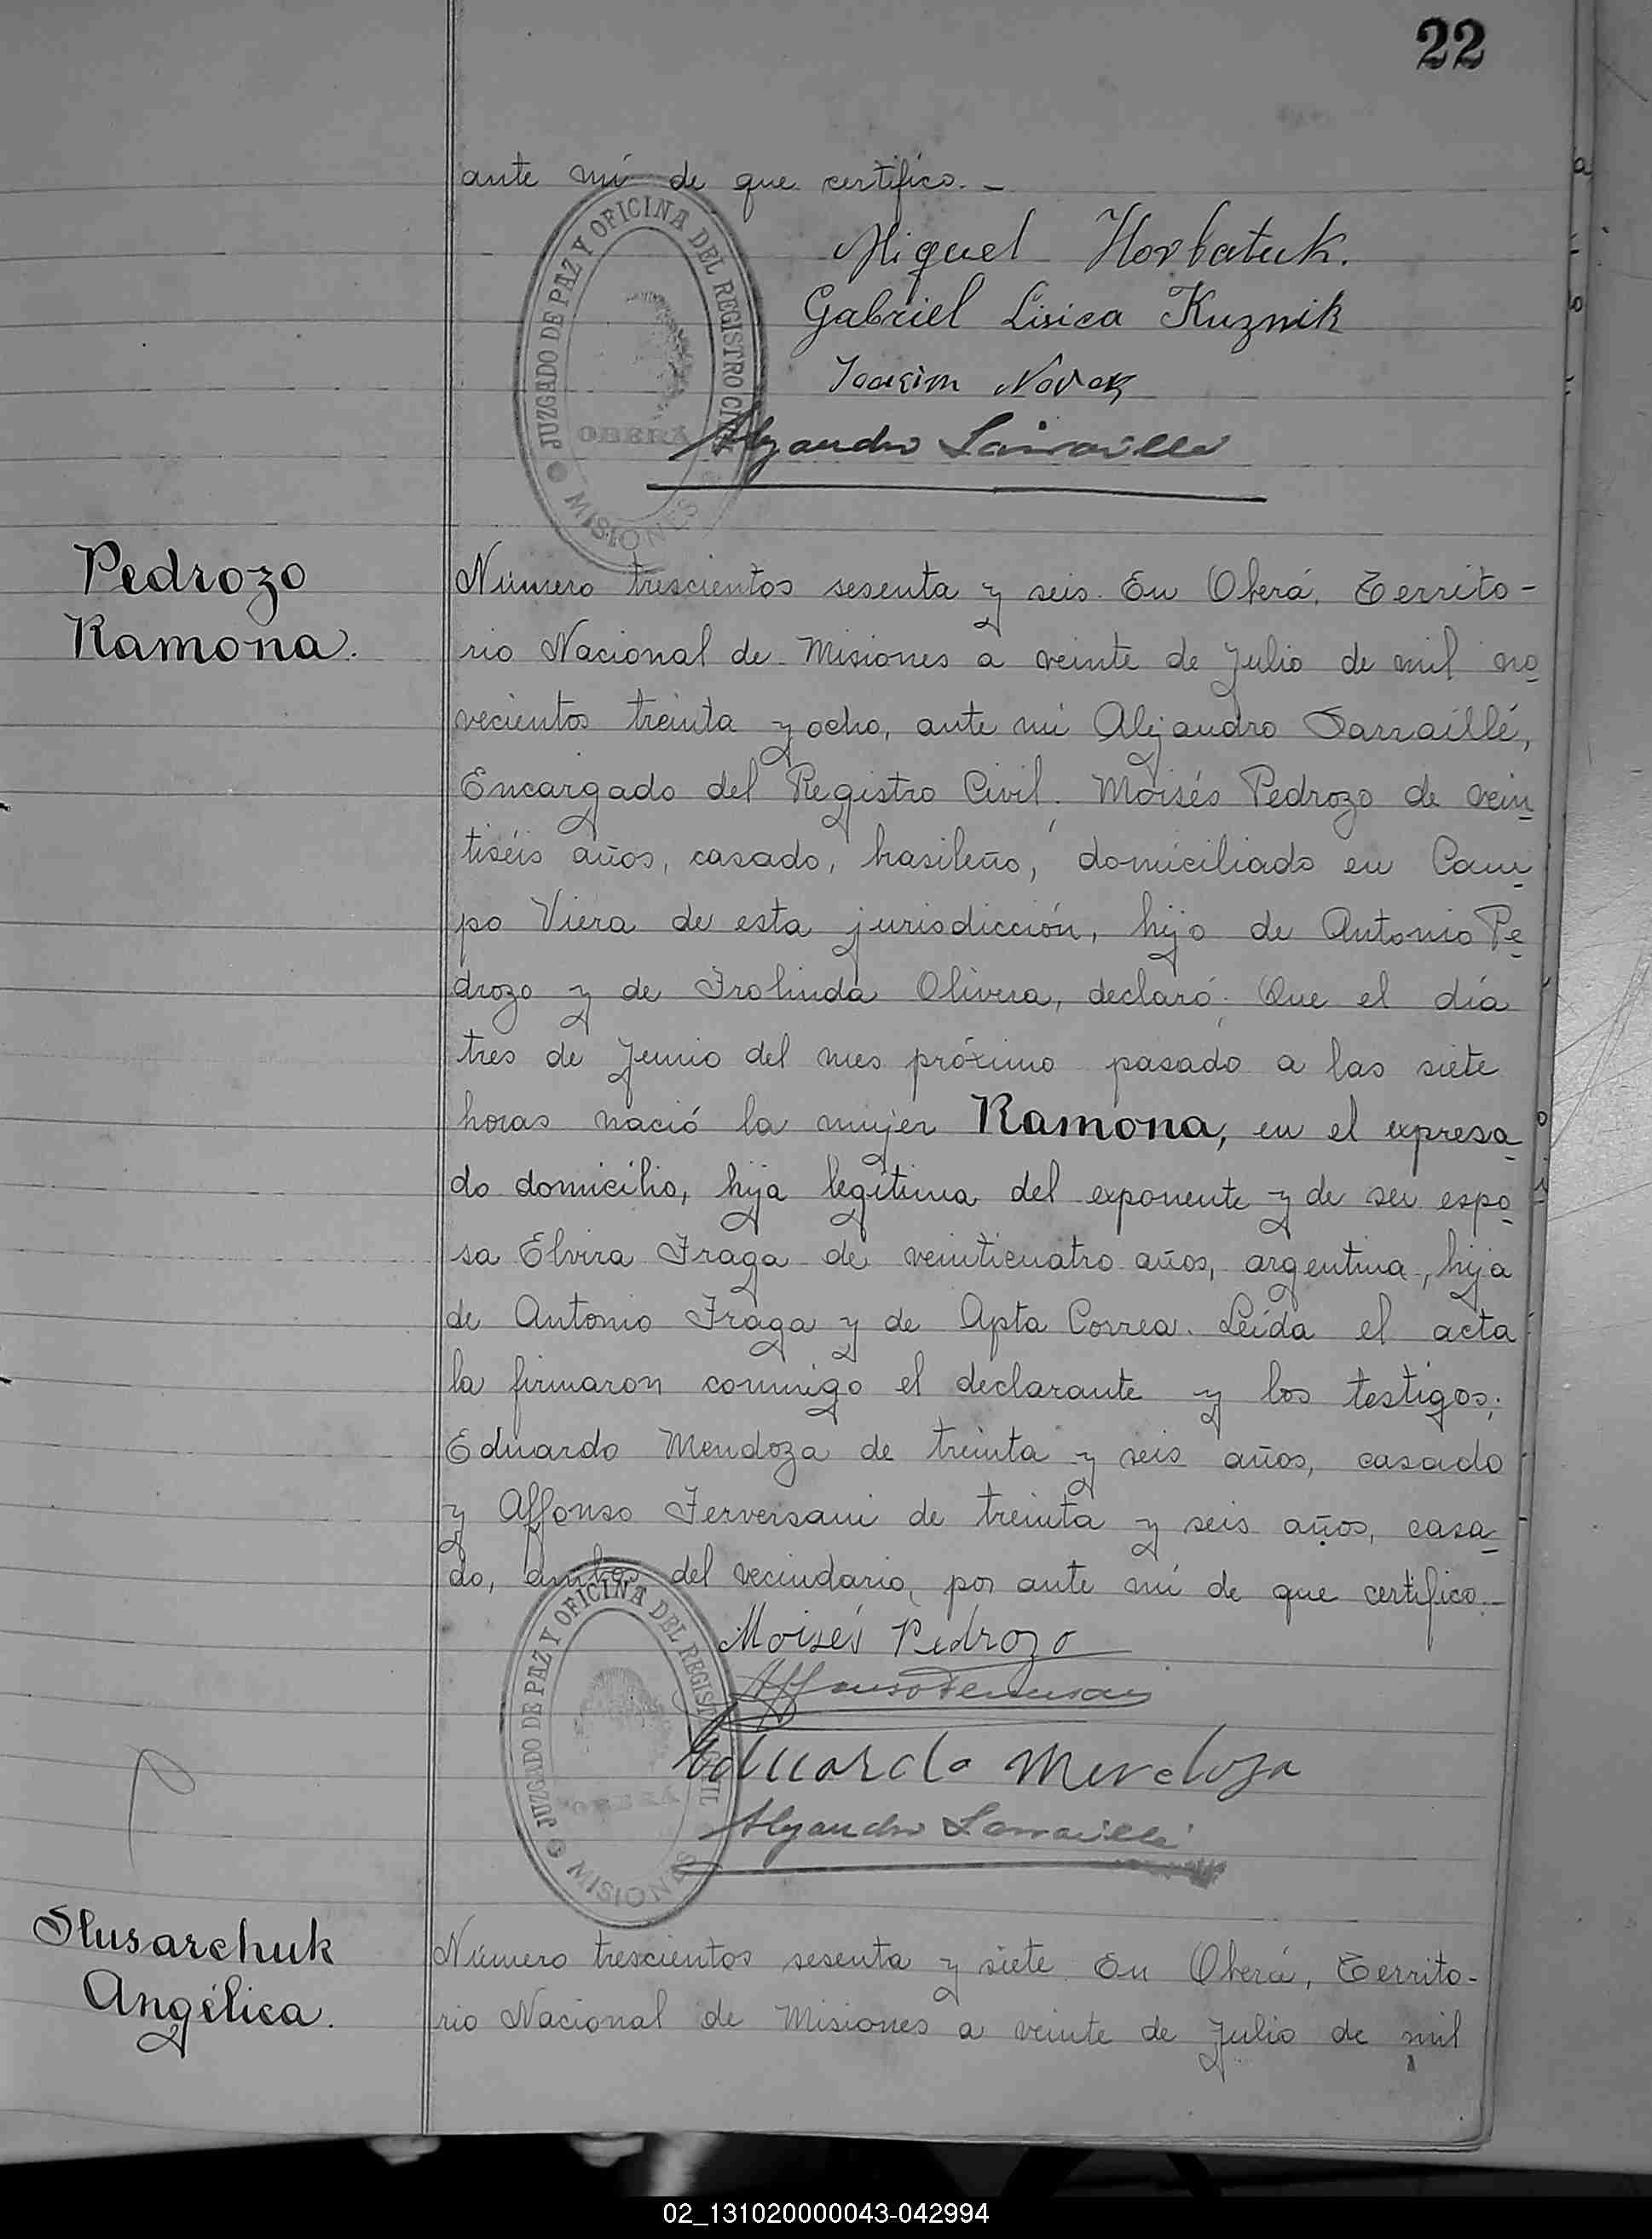 22
ante mí de que certifico.-
Miguel Horbatuk.
Gabriel Lisica Kuznik
Joakim Novak
Alejandro Sarraillé
JUZGADO DE PAZ Y OFICINA DEL REGISTRO CIVIL
OBERÁ
MISIONES
Pedrozo
Ramona.
Número trescientos sesenta y seis. En Oberá, Territo-
rio Nacional de Misiones a veinte de Julio de mil no
vecientos treinta y ocho, ante mí Alejandro Sarraillé,
Encargado del Registro Civil, Moisés Pedrozo de vein
tiséis años, casado, brasileño, domiciliado en Cam
po Viera de esta jurisdicción, hijo de Antonio Pe
drozo y de Frolinda Olivera, declaró: Que el día
tres de Junio del mes próximo pasado a las siete
horas nació la mujer Ramona, en el expresa
do domicilio, hija legítima del exponente y de su espo
sa Elvira Fraga de veinticuatro años, argentina, hija
de Antonio Fraga y de Apta Correa. Leída el acta
la firmaron conmigo el declarante y los testigos;
Eduardo Mendoza de treinta y seis años, casado
y Affonso Ferversani de treinta y seis años, casa
do, ambos del vecindario, por ante mí de que certifico.-
Moisés Pedrozo
Affonso
Eduardo Mendoza
Alejandro Sarraillé
JUZGADO DE PAZ Y OFICINA DEL REGISTRO CIVIL
OBERÁ
MISIONES
Slusarchuk
Angélica.
Número trescientos sesenta y siete. En Oberá, Territo-
rio Nacional de Misiones a veinte de Julio de mil
02_131020000043-042994